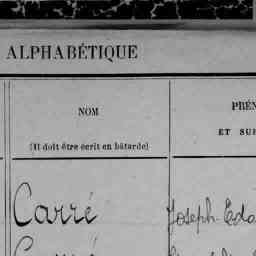 ALPHABÉTIQUE
NOM
(Il doit être écrit en bâtarde)
PRÉN
ET SUR
Carré Joseph Edo
Carré